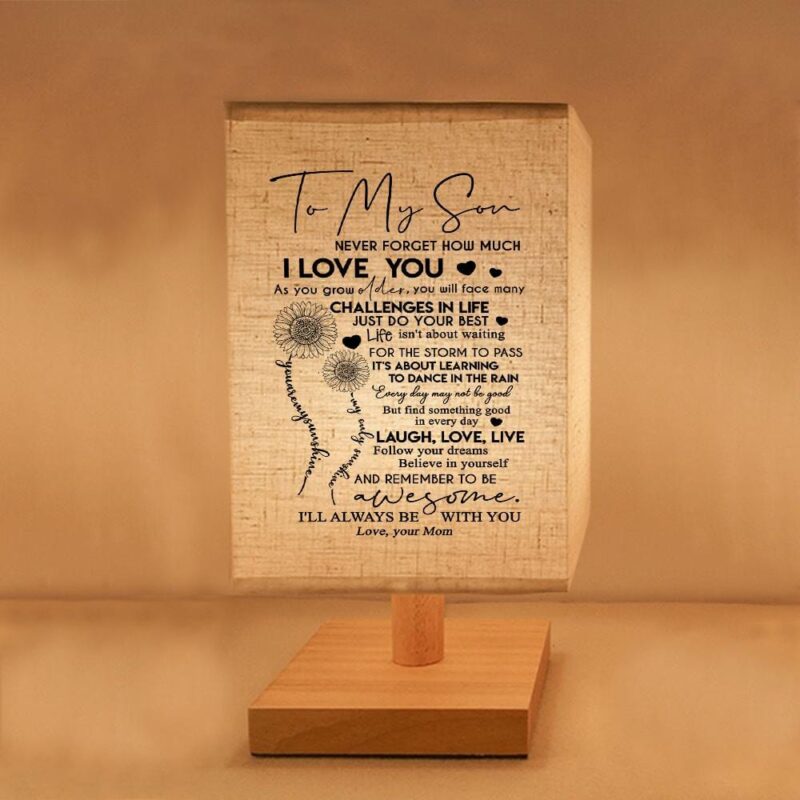 To My Son
NEVER FORGET HOW MUCH
I LOVE YOU
As you grow older, you will face many
CHALLENGES IN LIFE
JUST DO YOUR BEST
Life isn't about waiting
FOR THE STORM TO PASS
IT'S ABOUT LEARNING
TO DANCE IN THE RAIN
Every day may not be good
But find something good
in every day
LAUGH, LOVE, LIVE
Follow your dreams
Believe in yourself
AND REMEMBER TO BE
awesome.
I'LL ALWAYS BE WITH YOU
Love, your Mom
youaremysunshine
my only sunshine